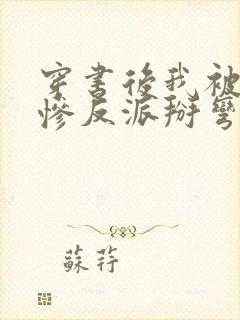 穿書後我被
慘反派掰彎
蘇荇